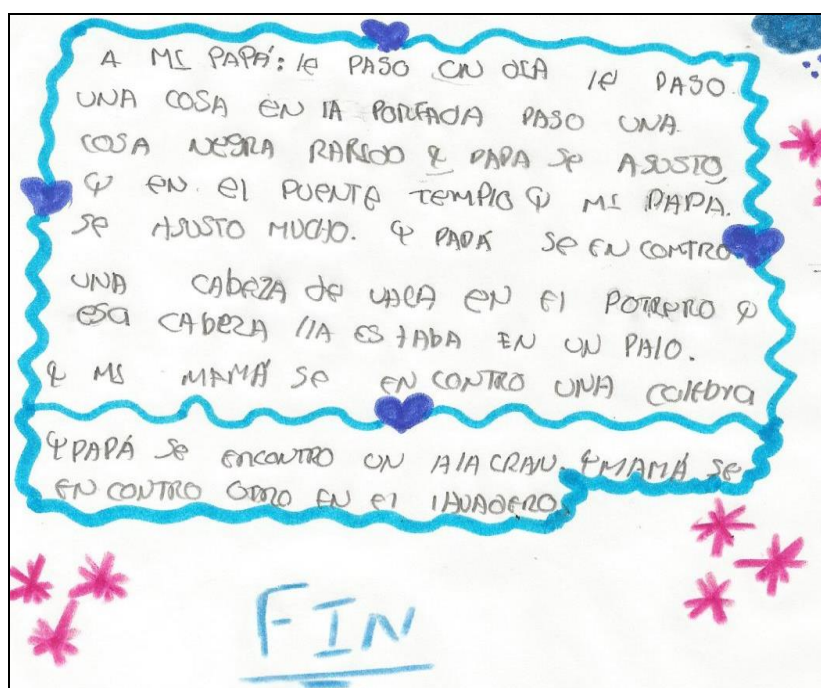 A MI PAPÁ: le PASO UN DIA le PASO
UNA COSA EN lA PORTADA PASO UNA
COSA NEGRA RAPIDO Y PAPA Se ASUSTO
Y EN el PUENTE TEMPlO Y MI PAPA.
Se ASUSTO MUCHO. Y PAPÁ Se EN CONTRO
UNA CAbeZA de VACA eN El POTRERO Y
esa CAbeZA llA ESTAbA EN UN PAlO.
Y MI MAMÁ Se EN CONTRO UNA Culebra
Y PAPÁ Se ENCONTRO UN AlA CRAN. Y MAMÁ Se
EN CONTRO OTRO EN El lAVADERO.
FIN